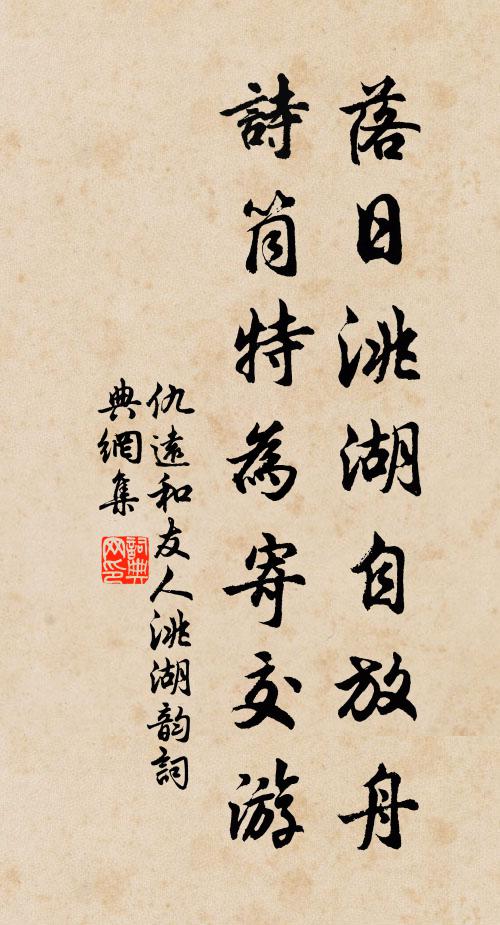 落日洮湖自放舟
詩筒特為寄交游
仇遠和友人洮湖韵詞
典網集
詞典網印